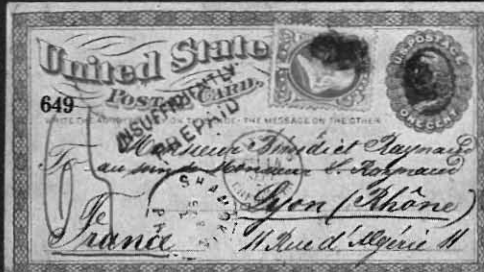 United States
Postal Card.
649
WRITE THE ADDRESS ON THIS SIDE - THE MESSAGE ON THE OTHER
U.S. POSTAGE
ONE CENT
INSUFFICIENTLY
PREPAID
Monsieur Bénédict Raymond
To au soin de Monsieur L. Raymond
SHAMOKIN
PA
Lyon (Rhône)
France 11 Rue d'Algérie 11